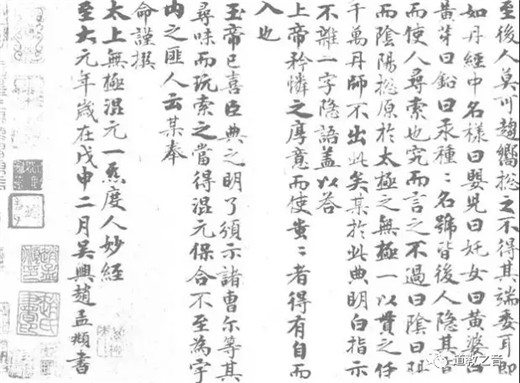 至後人莫可趨嚮総之不得其端委耳即
如丹經中名様曰嬰兒曰奼女曰黄婆曰
黄芽曰鉛曰汞種〻名號皆後人隐其言
而使人尋索也究而言之不過曰陰曰陽
而陰陽捴原於太極之無極一以貫之任
千萬丹師不出此矣某於此典明白指示
不雜一字隐語盖以荅
上帝矜憐之厚意而使蚩〻者得有自而
入也
玉帝已喜臣典之明了頒示諸曹尓等其
尋味而玩索之當得混元保合不至為宇
内之匪人云某奉
命謹撰
太上無極混元一炁度人妙經
至大元年歳在戊申二月吴興趙孟頫書
道教之音